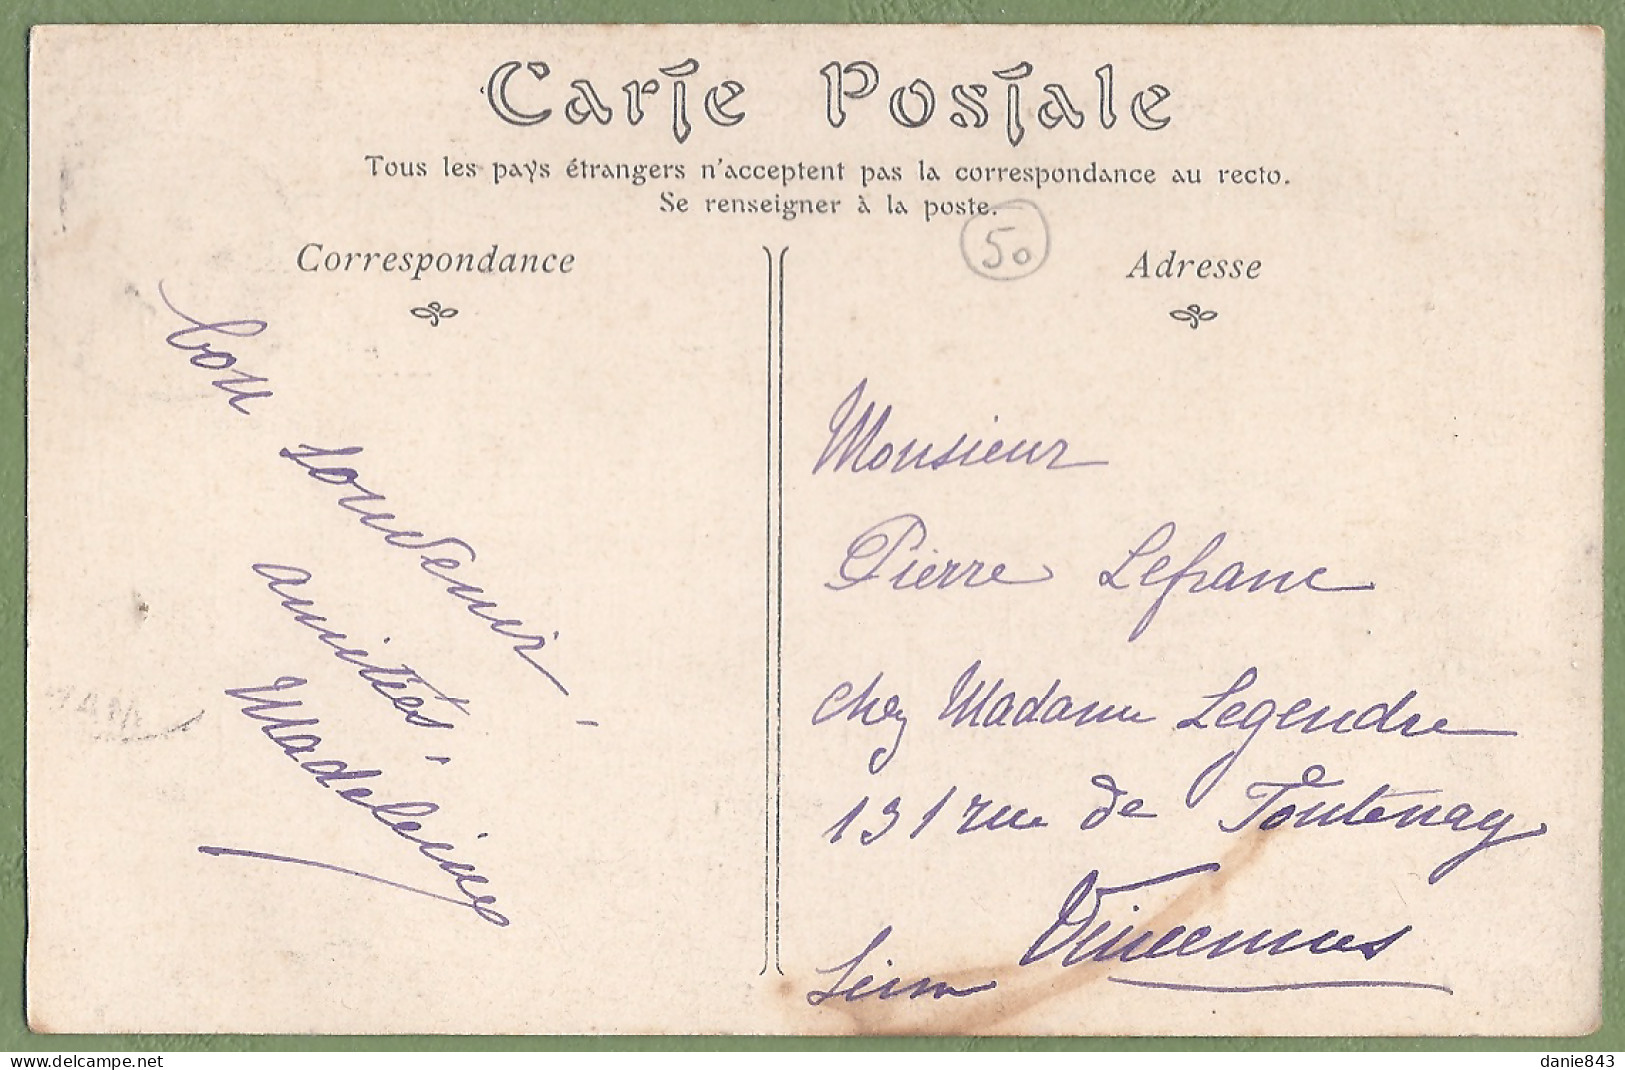 Carte Postale
Tous les pays étrangers n'acceptent pas la correspondance au recto.
Se renseigner à la poste.
50
Correspondance
bon
souvenir -
amitiés -
Madeleine
Adresse
Monsieur
Pierre Lefranc
chez Madame Legendre
131 rue de Fontenay
Vincennes
Seine
delcampe.net
danie843